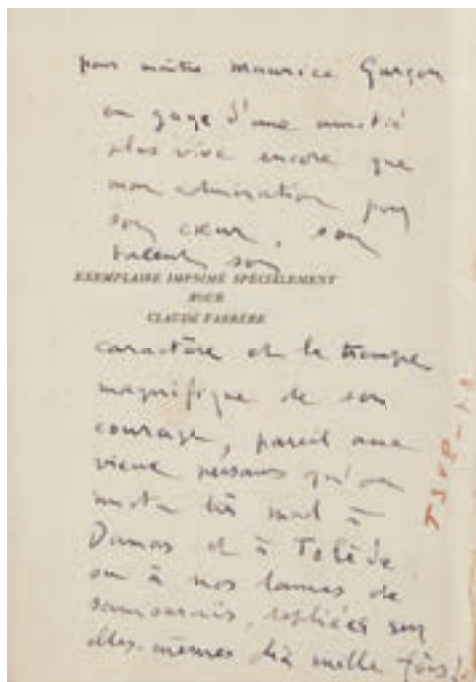 pour maître Maurice Garçon
en gage d'une amitié
plus vive encore que
mon admiration pour
son cœur, son
talent, son
EXEMPLAIRE IMPRIMÉ SPÉCIALEMENT
POUR
CLAUDE FARRÈRE
caractère et la trempe
magnifique de son
courage, pareil aux
vieux persans qu'on
imita très mal à
Damas et à Tolède
ou à nos lames de
samouraïs, repliées sur
elles-mêmes dix mille fois!